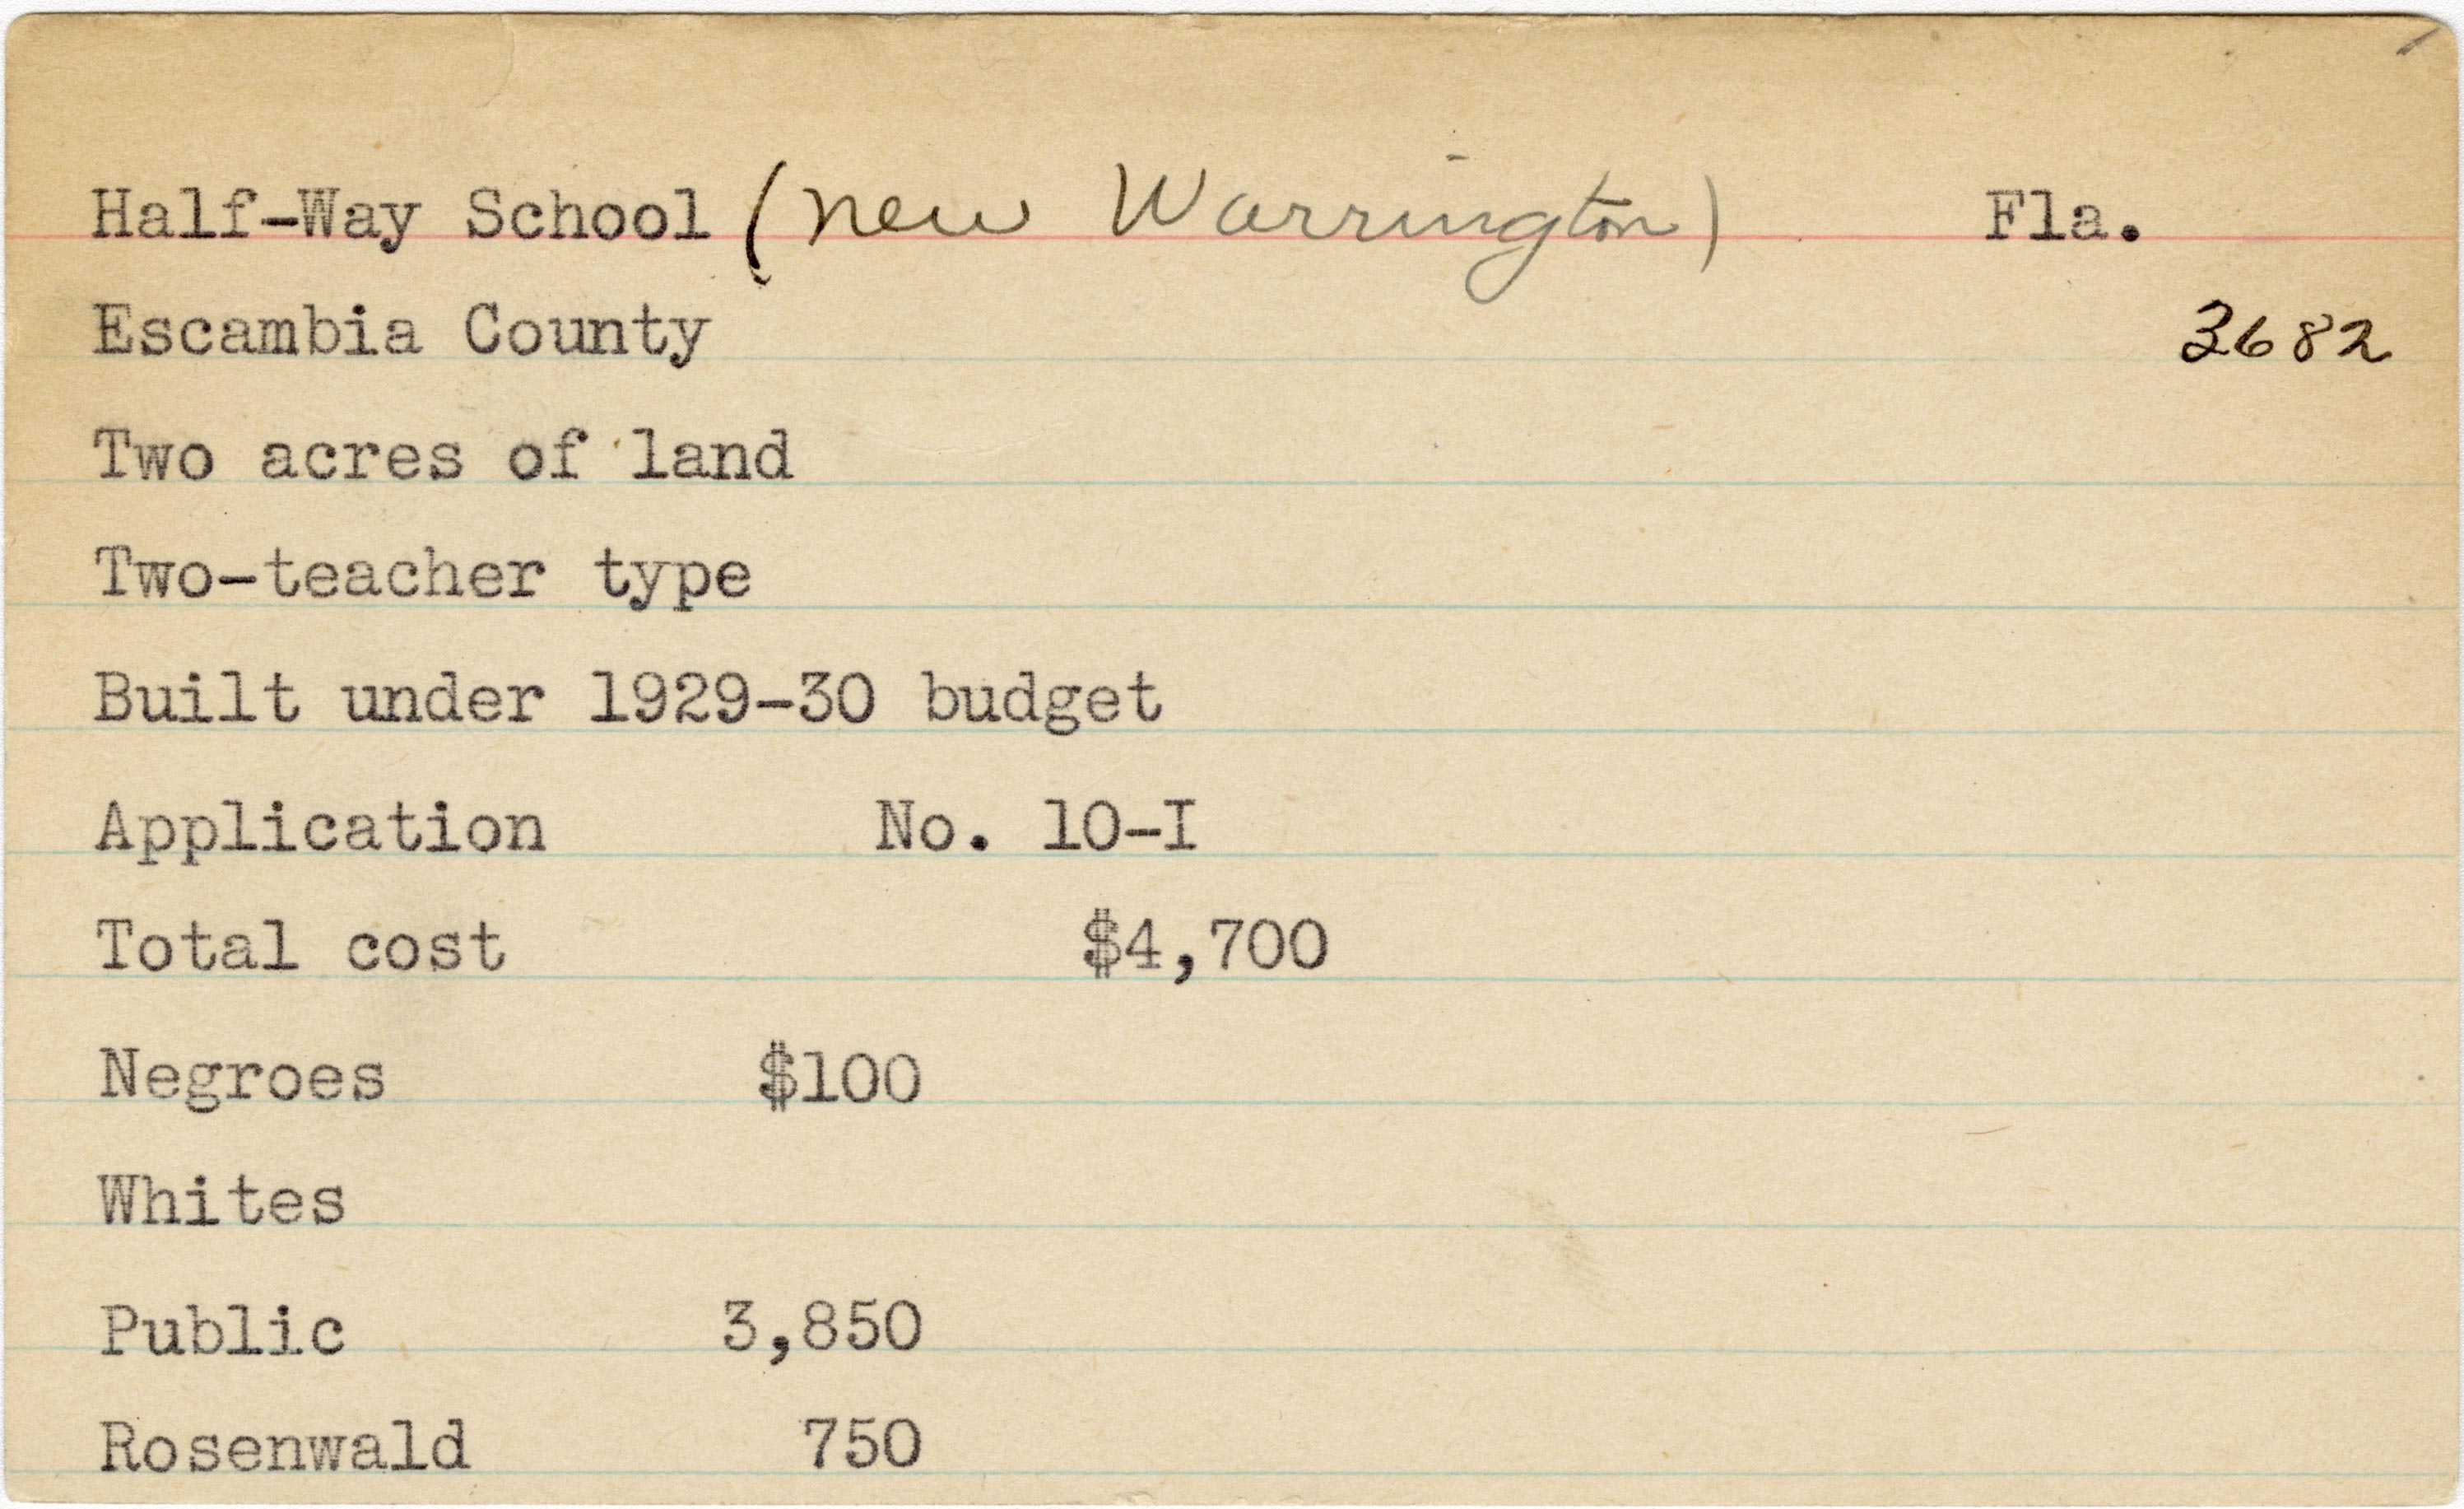 Half-Way School (new Warrington) Fla.
Escambia County 3682
Two acres of land
Two-teacher type
Built under 1929-30 budget
Application No. 10-I
Total cost $4,700
Negroes $100
Whites
Public 3,850
Rosenwald 750